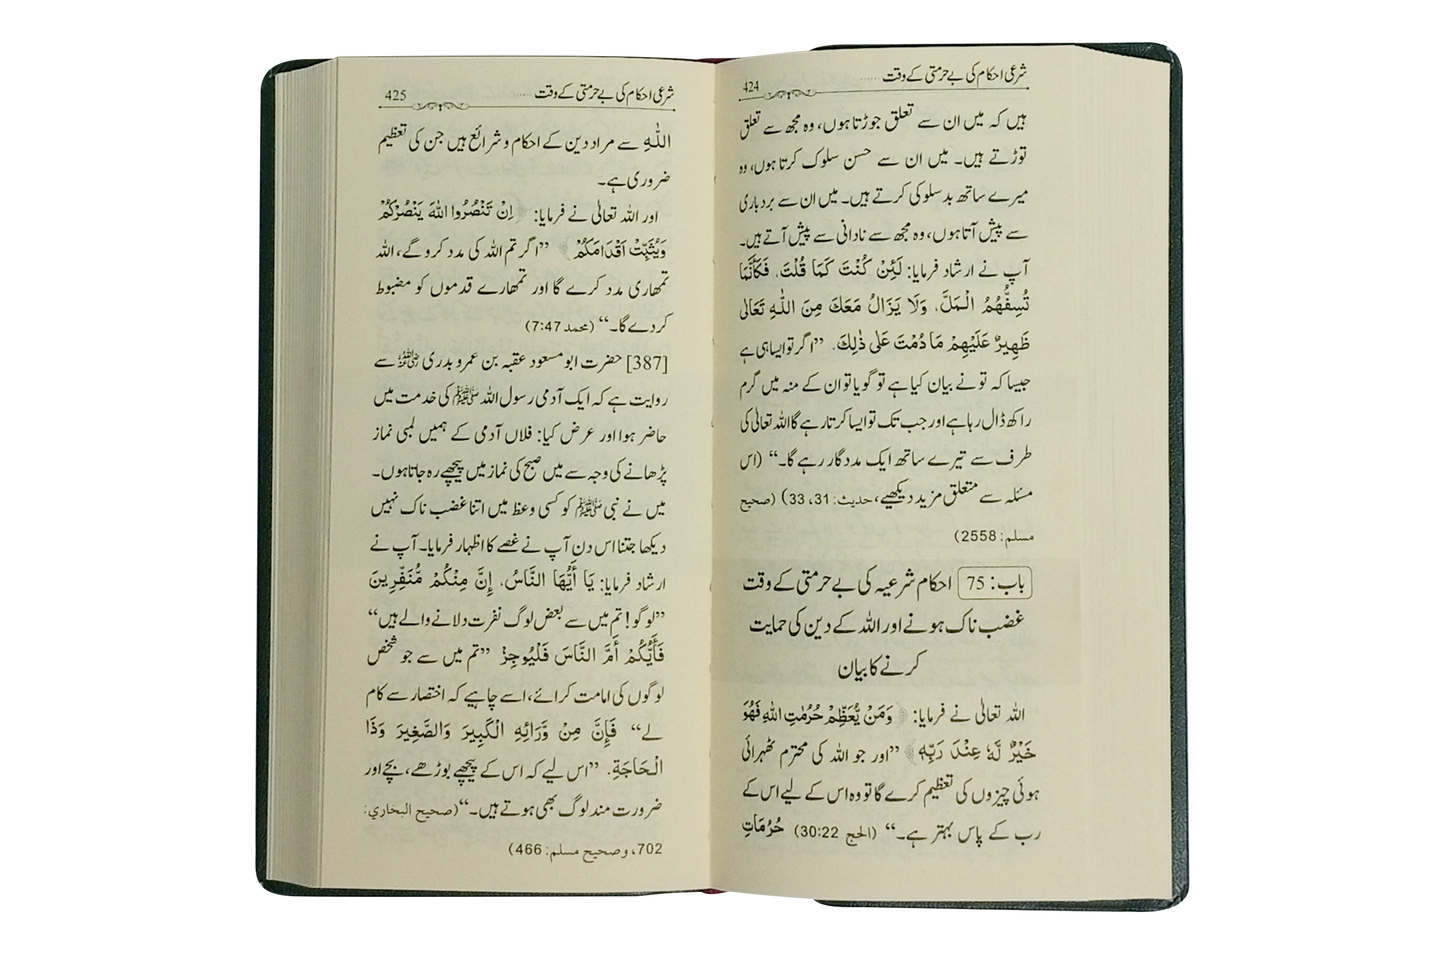 شرعی احکام کی بے حرمتی کے وقت ...... 424
ہیں کہ میں ان سے تعلق جوڑتا ہوں، وہ مجھ سے تعلق
توڑتے ہیں۔ میں ان سے حسن سلوک کرتا ہوں، وہ
میرے ساتھ بدسلوکی کرتے ہیں۔ میں ان سے بردباری
سے پیش آتا ہوں، وہ مجھ سے نادانی سے پیش آتے ہیں۔
آپ نے ارشاد فرمایا: لَئِنْ كُنْتَ كَمَا قُلْتَ، فَكَأَنَّمَا
تُسِفُّهُمُ الْمَلَّ، وَلَا يَزَالُ مَعَكَ مِنَ اللّٰهِ تَعَالٰى
ظَهِيرٌ عَلَيْهِمْ مَا دُمْتَ عَلٰى ذٰلِكَ. ”اگر تو ایسا ہی ہے
جیسا کہ تو نے بیان کیا ہے تو گویا تو ان کے منہ میں گرم
راکھ ڈال رہا ہے اور جب تک تو ایسا کرتا رہے گا اللہ تعالٰی کی
طرف سے تیرے ساتھ ایک مددگار رہے گا۔“ (اس
مسئلہ سے متعلق مزید دیکھیے، حدیث: 31، 33) (صحیح
مسلم: 2558)
باب: 75 احکام شرعیہ کی بے حرمتی کے وقت
غضب ناک ہونے اور اللہ کے دین کی حمایت
کرنے کا بیان
اللہ تعالٰی نے فرمایا: ﴿وَمَنْ يُّعَظِّمْ حُرُمٰتِ اللّٰهِ فَهُوَ
خَيْرٌ لَّهٗ عِنْدَ رَبِّهٖ﴾ ”اور جو اللہ کی محترم ٹھہرائی
ہوئی چیزوں کی تعظیم کرے گا تو وہ اس کے لیے اس کے
رب کے پاس بہتر ہے۔“ (الحج 30:22) حُرُمَاتِ
شرعی احکام کی بے حرمتی کے وقت ...... 425
اللّٰهِ سے مراد دین کے احکام و شرائع ہیں جن کی تعظیم
ضروری ہے۔
اور اللہ تعالٰی نے فرمایا: ﴿اِنْ تَنْصُرُوا اللّٰهَ يَنْصُرْكُمْ
وَيُثَبِّتْ اَقْدَامَكُمْ﴾ ”اگر تم اللہ کی مدد کرو گے، اللہ
تمھاری مدد کرے گا اور تمھارے قدموں کو مضبوط
کردے گا۔“ (محمد 7:47)
[387] حضرت ابو مسعود عقبہ بن عمرو بدری رضی اللہ عنہ سے
روایت ہے کہ ایک آدمی رسول اللہ ﷺ کی خدمت میں
حاضر ہوا اور عرض کیا: فلاں آدمی کے ہمیں لمبی نماز
پڑھانے کی وجہ سے میں صبح کی نماز میں پیچھے رہ جاتا ہوں۔
میں نے نبی ﷺ کو کسی وعظ میں اتنا غضب ناک نہیں
دیکھا جتنا اس دن آپ نے غصے کا اظہار فرمایا۔ آپ نے
ارشاد فرمایا: يَا أَيُّهَا النَّاسُ، إِنَّ مِنْكُمْ مُّنَفِّرِينَ
”لوگو! تم میں سے بعض لوگ نفرت دلانے والے ہیں“
فَأَيُّكُمْ أَمَّ النَّاسَ فَلْيُوجِزْ ”تم میں سے جو شخص
لوگوں کی امامت کرائے، اسے چاہیے کہ اختصار سے کام
لے“ فَإِنَّ مِنْ وَّرَائِهِ الْكَبِيرَ وَالصَّغِيرَ وَذَا
الْحَاجَةِ. ”اس لیے کہ اس کے پیچھے بوڑھے، بچے اور
ضرورت مند لوگ بھی ہوتے ہیں۔“ (صحیح البخاري:
702، وصحیح مسلم: 466)